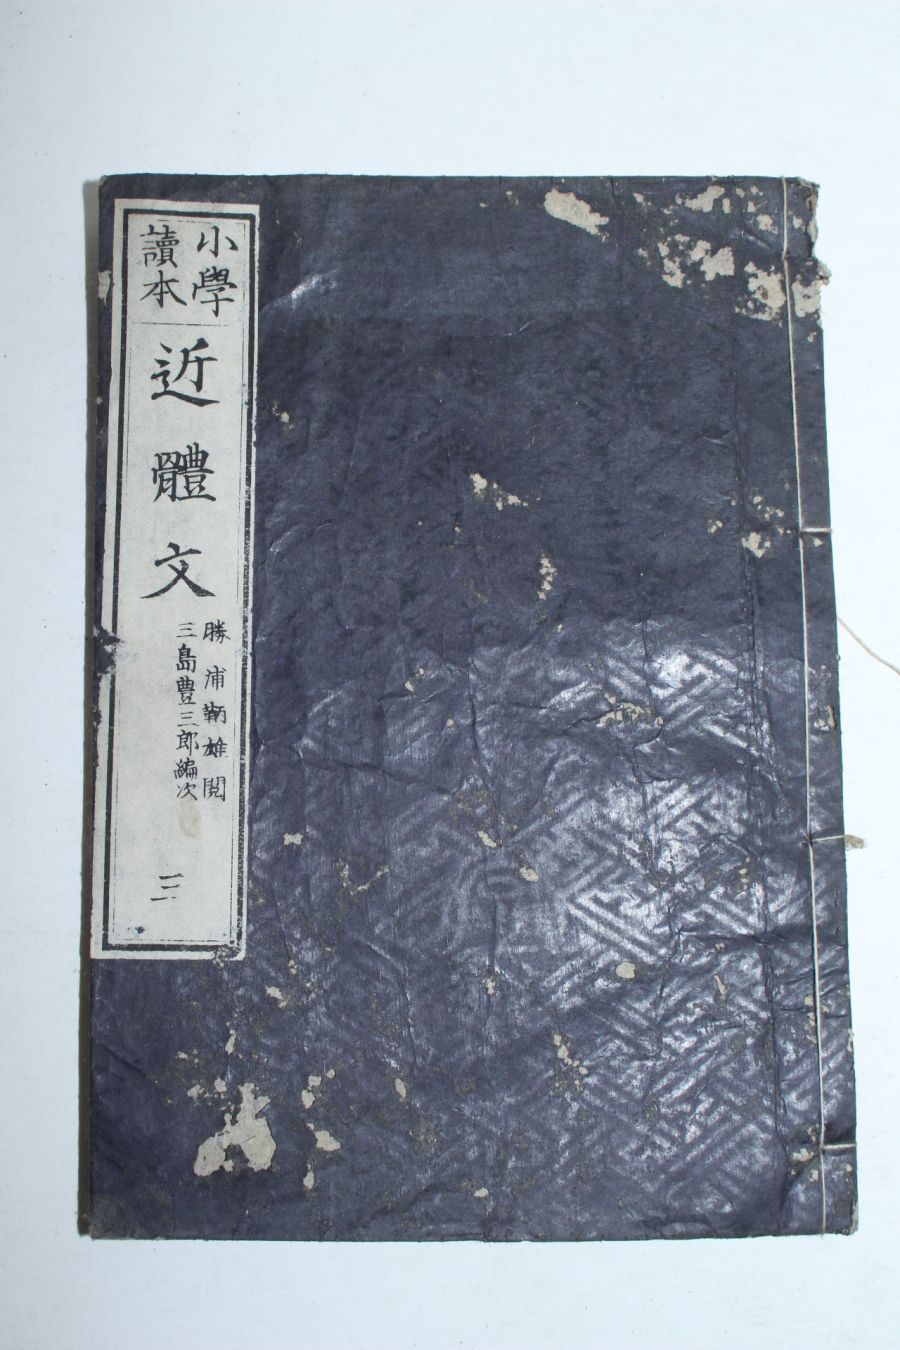 小學
讀本
近體文
勝浦鞆雄閲
三島豊三郎編次
三